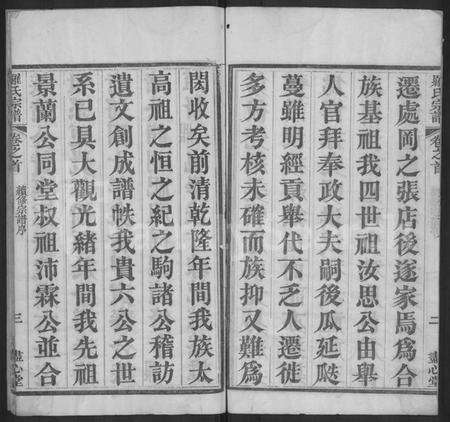 遷處岡之張店後遂家焉為合
族基祖我四世祖汝思公由舉
人官拜奉政大夫嗣後瓜延瓞
蔓雖明經貢舉代不乏人遷徙
多方考核未確而族抑又難為
羅氏宗譜
卷之首
二
盡心堂
閔收矣前清乾隆年間我族太
高祖之恒之紀之駒諸公稽訪
遺文創成譜帙我貴六公之世
系已具大觀光緒年間我先祖
景蘭公同堂叔祖沛霖公並合
羅氏宗譜
卷之首
續修宗譜序
三
盡心堂